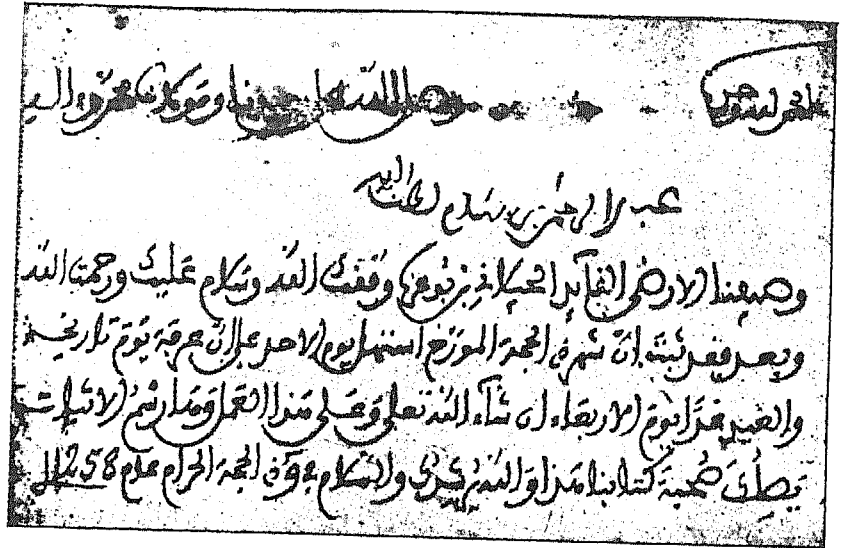 الحمد لله وحده وصلى الله على سيدنا ومولانا محمد وءاله
عبد الرحمن بن هشام الله
وصيفنا الارضى القايد الجيلاني بن بوعزة وفقك الله وسلام عليك ورحمت الله
وبعد فقد ثبت ان شهر ذي الحجة المورخ استهل يوم الاحد على ان عرفة يوم تاريخه
والعيد غدا يوم الاربعاء ان شاء الله تعلى وعلى هذا العمل
يصلك صحبة كتابنا هذا والله يرشدك والسلام في ذي الحجة الحرام عام 1258